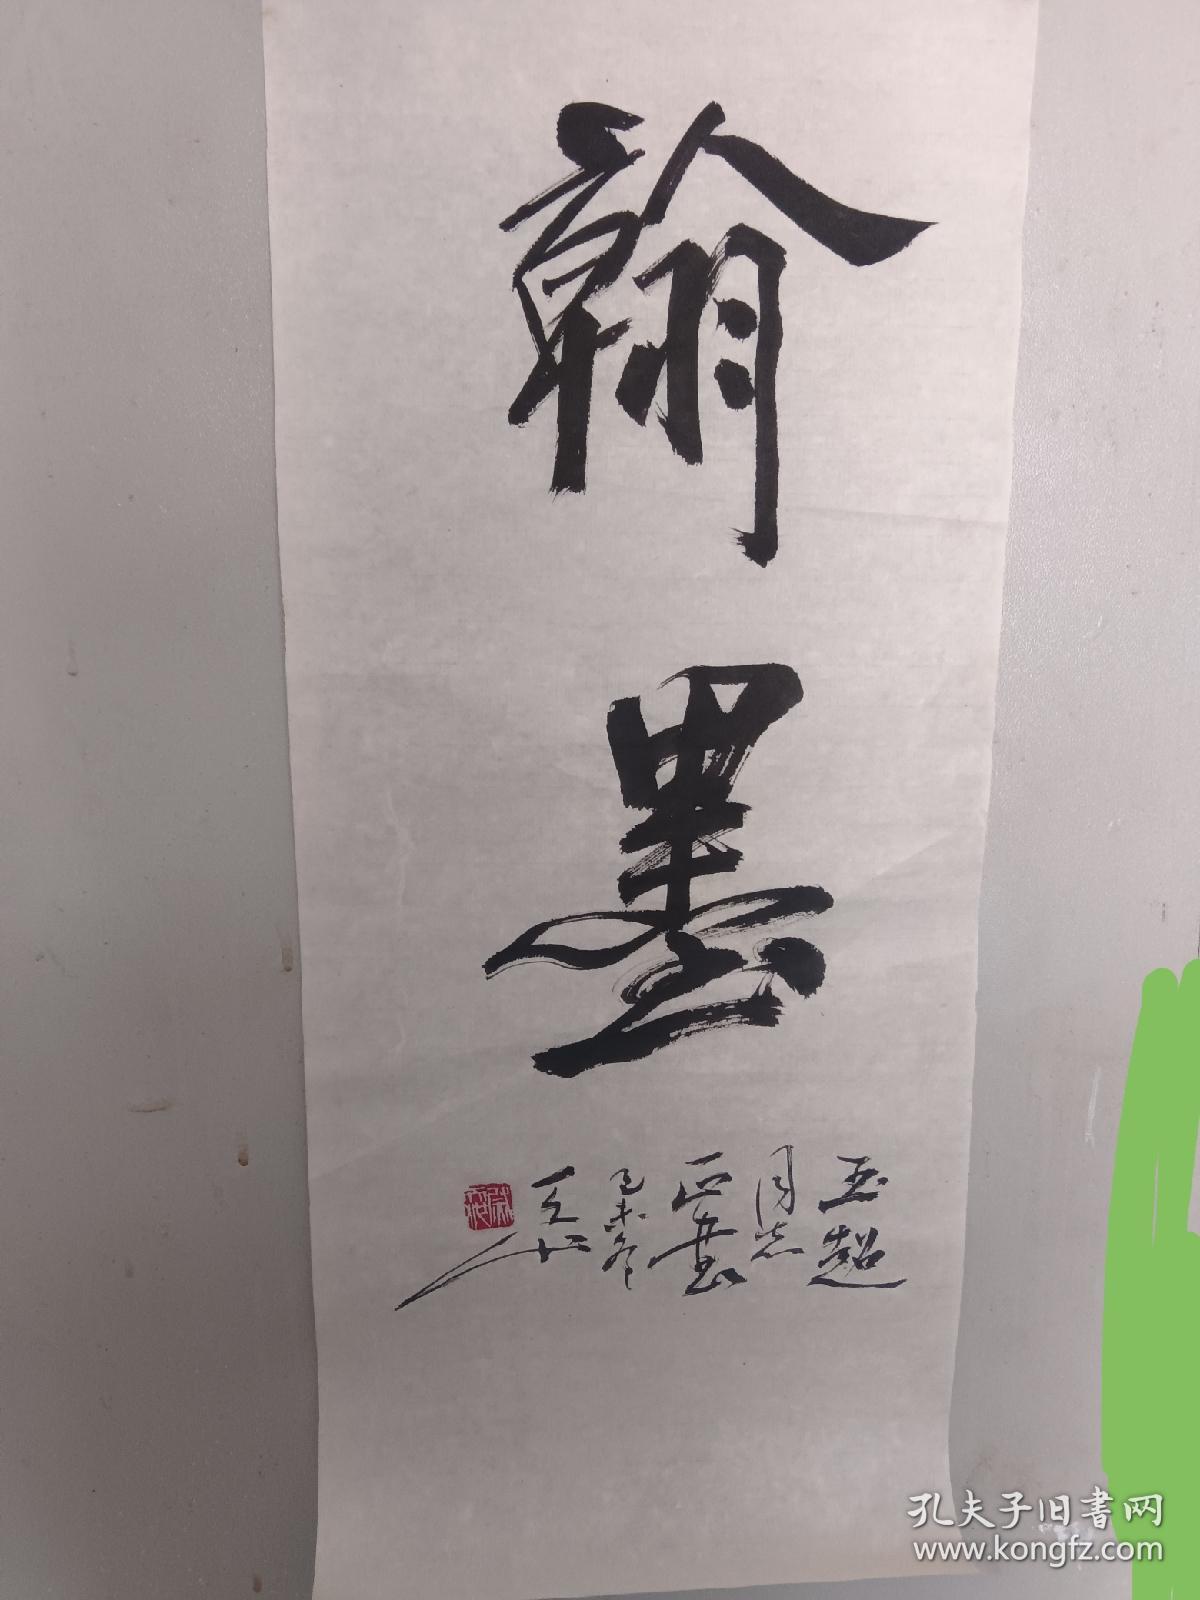 翰
墨
玉超
同志
正书
己未冬
孔夫子旧书网
www.kongfz.com